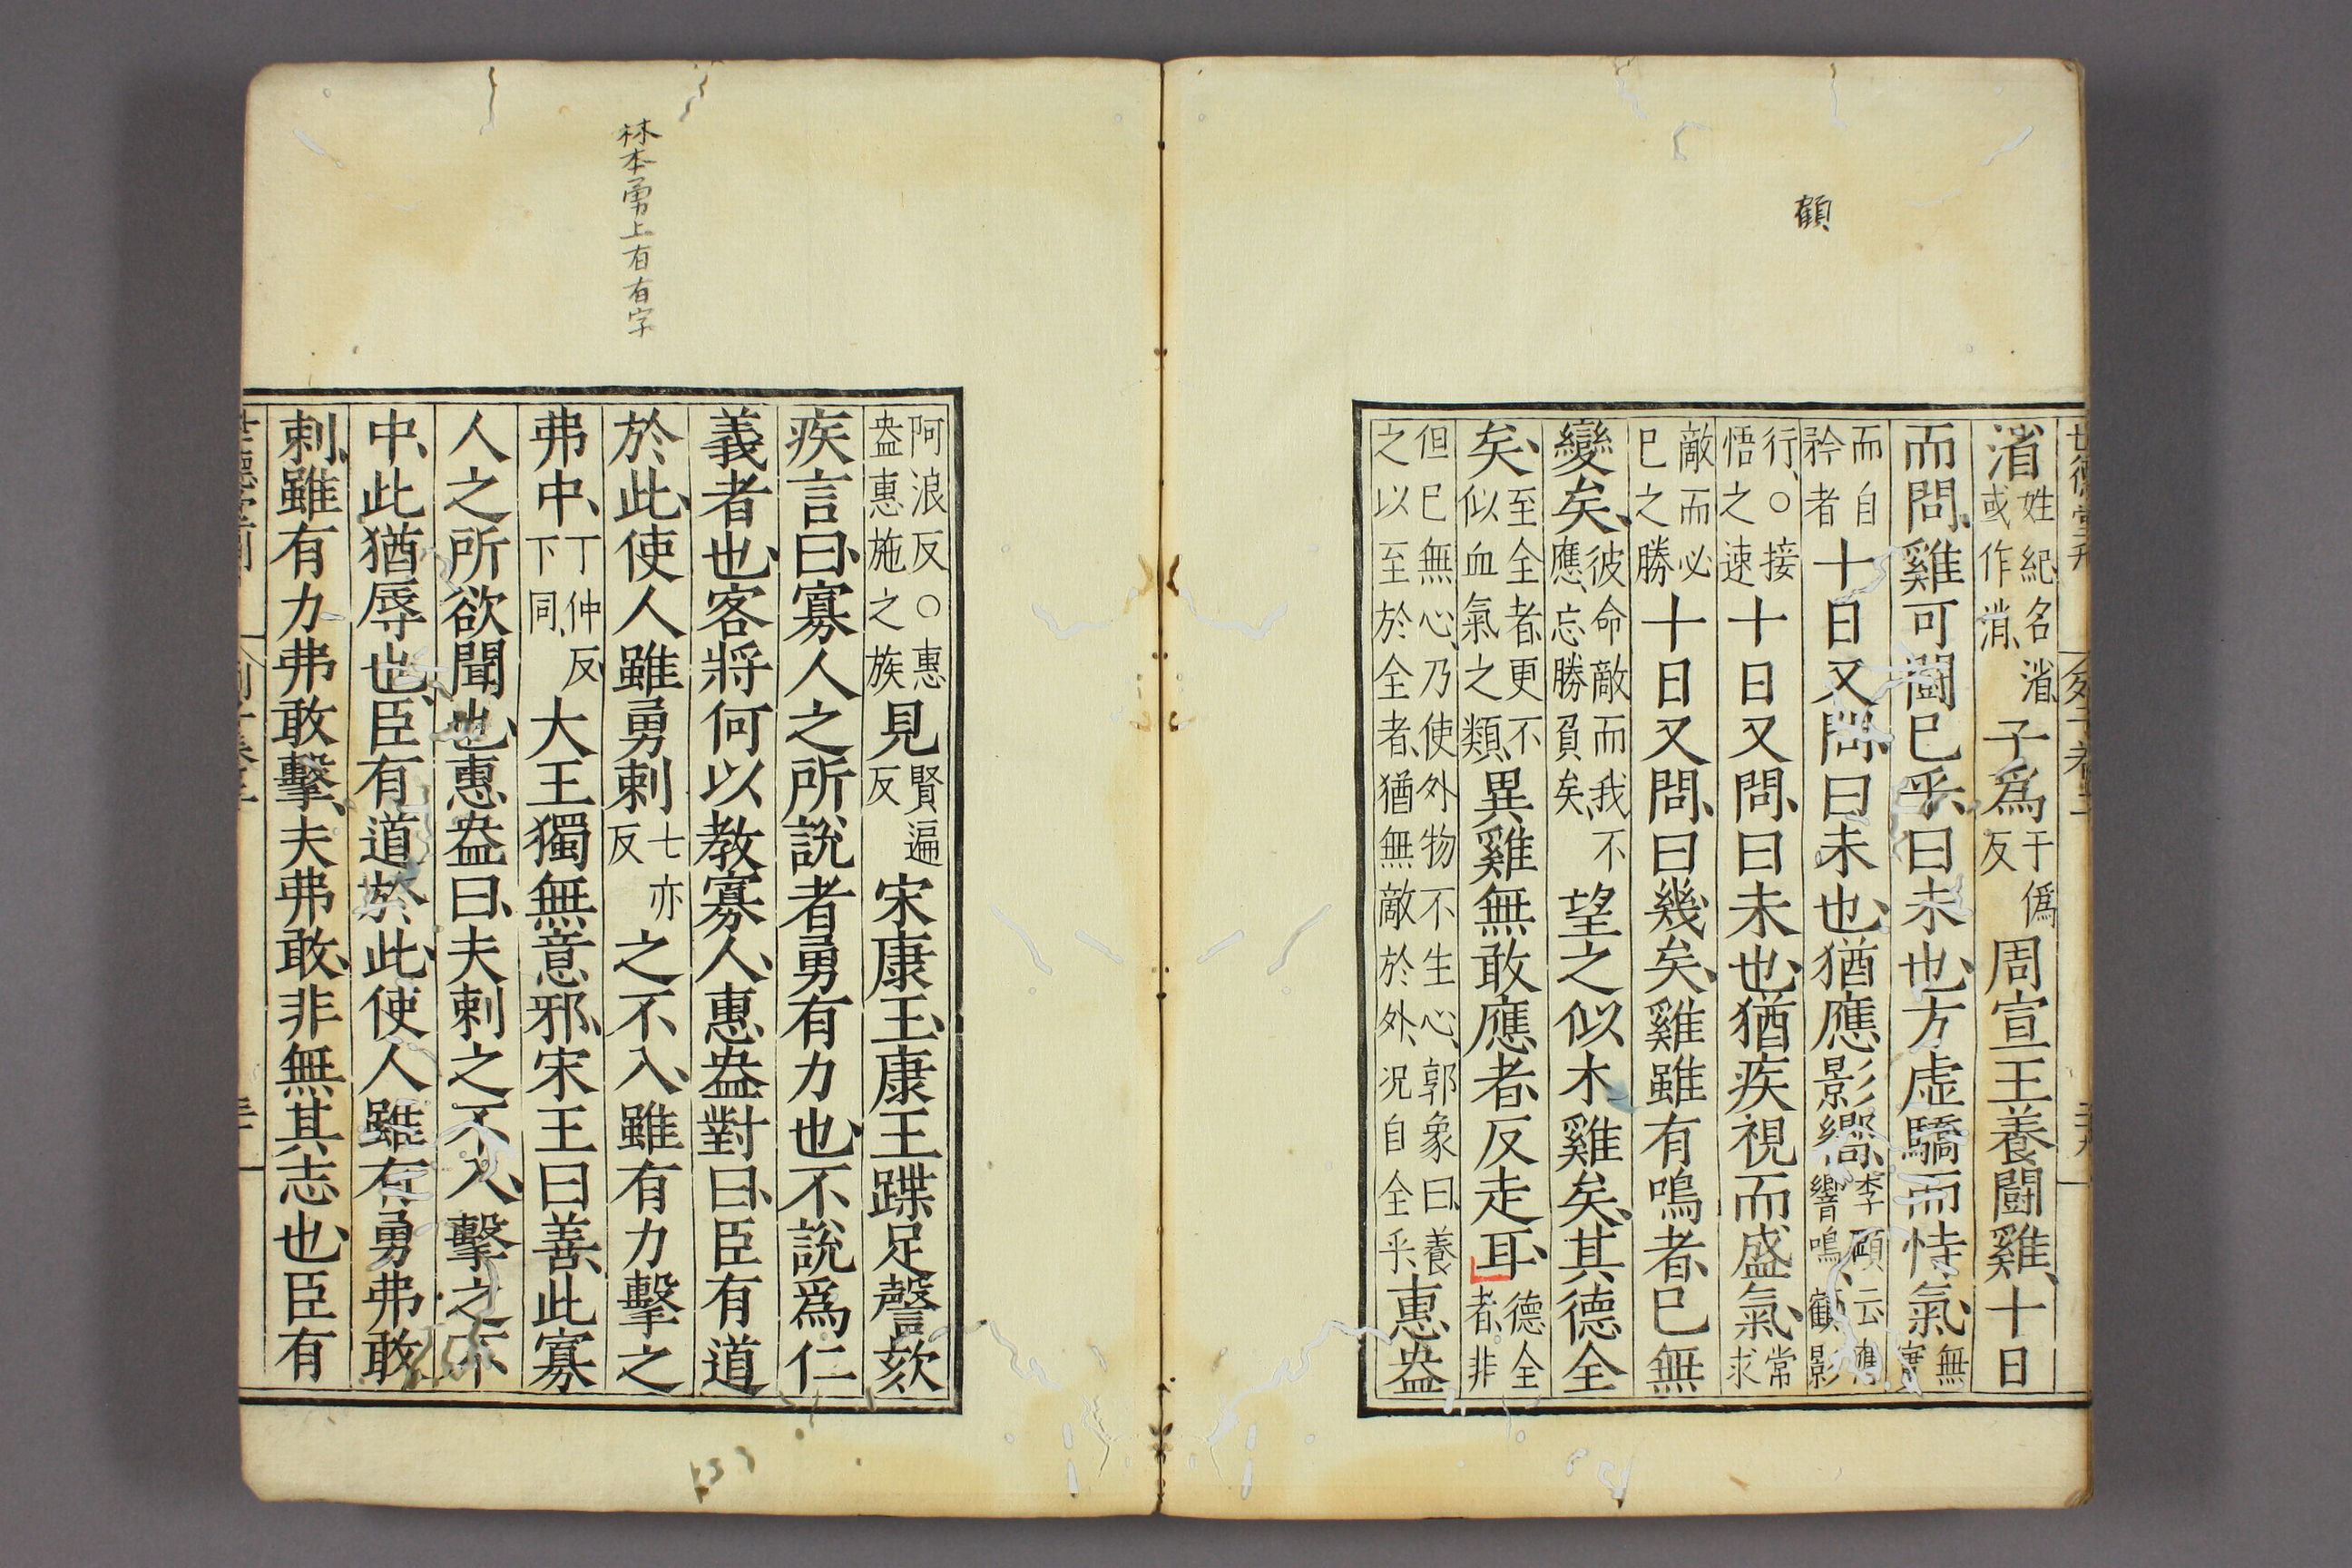 顧
世德堂刊
渻姓紀名渻或作消子爲于僞反周宣王養鬬雞、十日
而問、雞可鬬已乎、曰未也、方虛驕而恃氣、無實
而自矜者十日又問、曰未也、猶應影嚮、李頤云應響鳴、顧影
行、○接悟之速十日又問、曰未也、猶疾視而盛氣、常求
敵而必已之勝十日又問、曰幾矣、雞雖有鳴者、已無
變矣、彼命敵而我不應、忘勝負矣、望之似木雞矣、其德全
矣、至全者更不似血氣之類、異雞無敢應者、反走耳、德全者、非
但已無心、乃使外物不生心、郭象曰、養之以至於全者、猶無敵於外、況自全乎、惠盎
林本勇上有有字
阿浪反○惠盎惠施之族見賢遍反宋康王、康王蹀足謦欬
疾言曰、寡人之所說者勇有力也、不說爲仁
義者也、客將何以教寡人、惠盎對曰、臣有道
於此、使人雖勇刺七亦反之不入、雖有力擊之
弗中、丁仲反下同、大王獨無意邪、宋王曰善、此寡
人之所欲聞也、惠盎曰、夫刺之不入、擊之不
中、此猶辱也、臣有道於此、使人雖有勇弗敢
刺、雖有力弗敢擊、夫弗敢、非無其志也、臣有